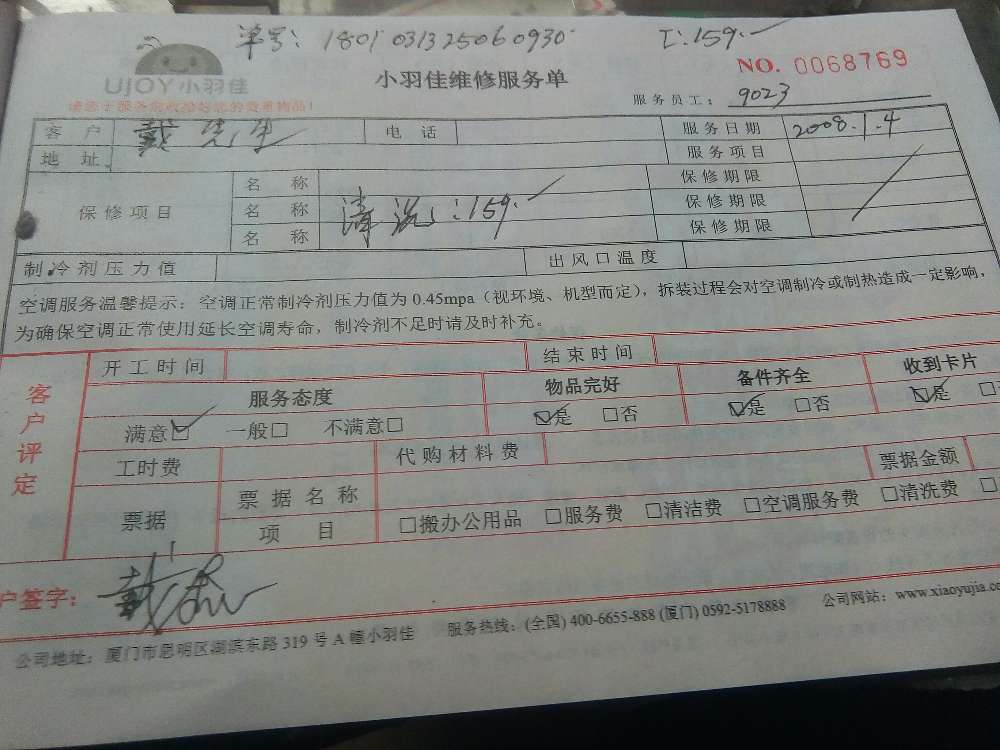 单号: 180103132506 0930 工:159.
UJOY小羽佳
小羽佳维修服务单
NO. 0068769
服务员工: 9023
客户 戴先生 电话 服务日期 2008.1.4
地址 服务项目
保修项目 名称 保修期限
名称 清洗:159. 保修期限
名称 保修期限
制冷剂压力值 出风口温度
空调服务温馨提示:空调正常制冷剂压力值为 0.45mpa(视环境、机型而定),拆装过程会对空调制冷或制热造成一定影响,
为确保空调正常使用延长空调寿命,制冷剂不足时请及时补充。
客户评定 开工时间 结束时间
服务态度 物品完好 备件齐全 收到卡片
满意☑ 一般□ 不满意□ ☑是 □否 ☑是 □否 ☑是 □
工时费 代购材料费
票据 票据名称 票据金额
项目 □搬办公用品 □服务费 □清洁费 □空调服务费 □清洗费 □
户签字:
公司地址:厦门市思明区湖滨东路 319 号 A 幢小羽佳 服务热线:(全国) 400-6655-888 (厦门) 0592-5178888 公司网站:www.xiaoyujia.co